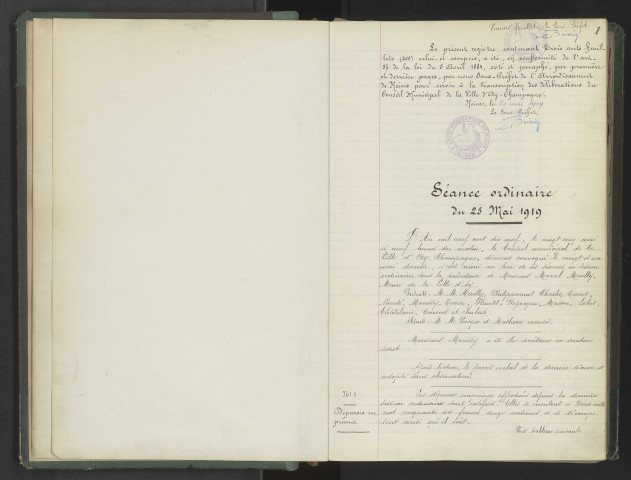 Premier feuillet. Le Sous-Préfet
1
Le présent registre contenant Trois cents feuil-
lets (300) celui-ci compris, a été, en conformité de l'art.
57 de la loi du 5 Avril 1884, coté et paraphé, par première
et dernière pages, par nous Sous-Préfet de l'Arrondissement
de Reims pour servir à la transcription des délibérations du
Conseil Municipal de la Ville d'Ay-Champagne.
Reims, le 1919
Le Sous-Préfet
Séance ordinaire
du 25 Mai 1919
L'An mil neuf cent dix neuf, le vingt-cinq mai
à neuf heures du matin, le Conseil municipal de la
Ville d'Ay, Champagne, dûment convoqué le vingt et un
mai dernier, s'est réuni au lieu de ses séances, en session
ordinaire, sous la présidence de Monsieur Marcel Mailly,
Maire de la Ville d'Ay
Présents: M.M. Mailly, Philipponnat Charles,
et
Absents: M.M. et Mathieu excusés.
Monsieur a été élu secrétaire au scrutin
secret.
Après lecture, le procès verbal de la dernière séance est
adopté sans observation.
N° 1
Dépenses im-
prévues
Les dépenses imprévues effectuées depuis la dernière
session ordinaire sont ratifiées. Elles se montent à
cent cinquante six francs douze centimes et se décompo-
sent ainsi qu'il suit.
Voir tableau suivant